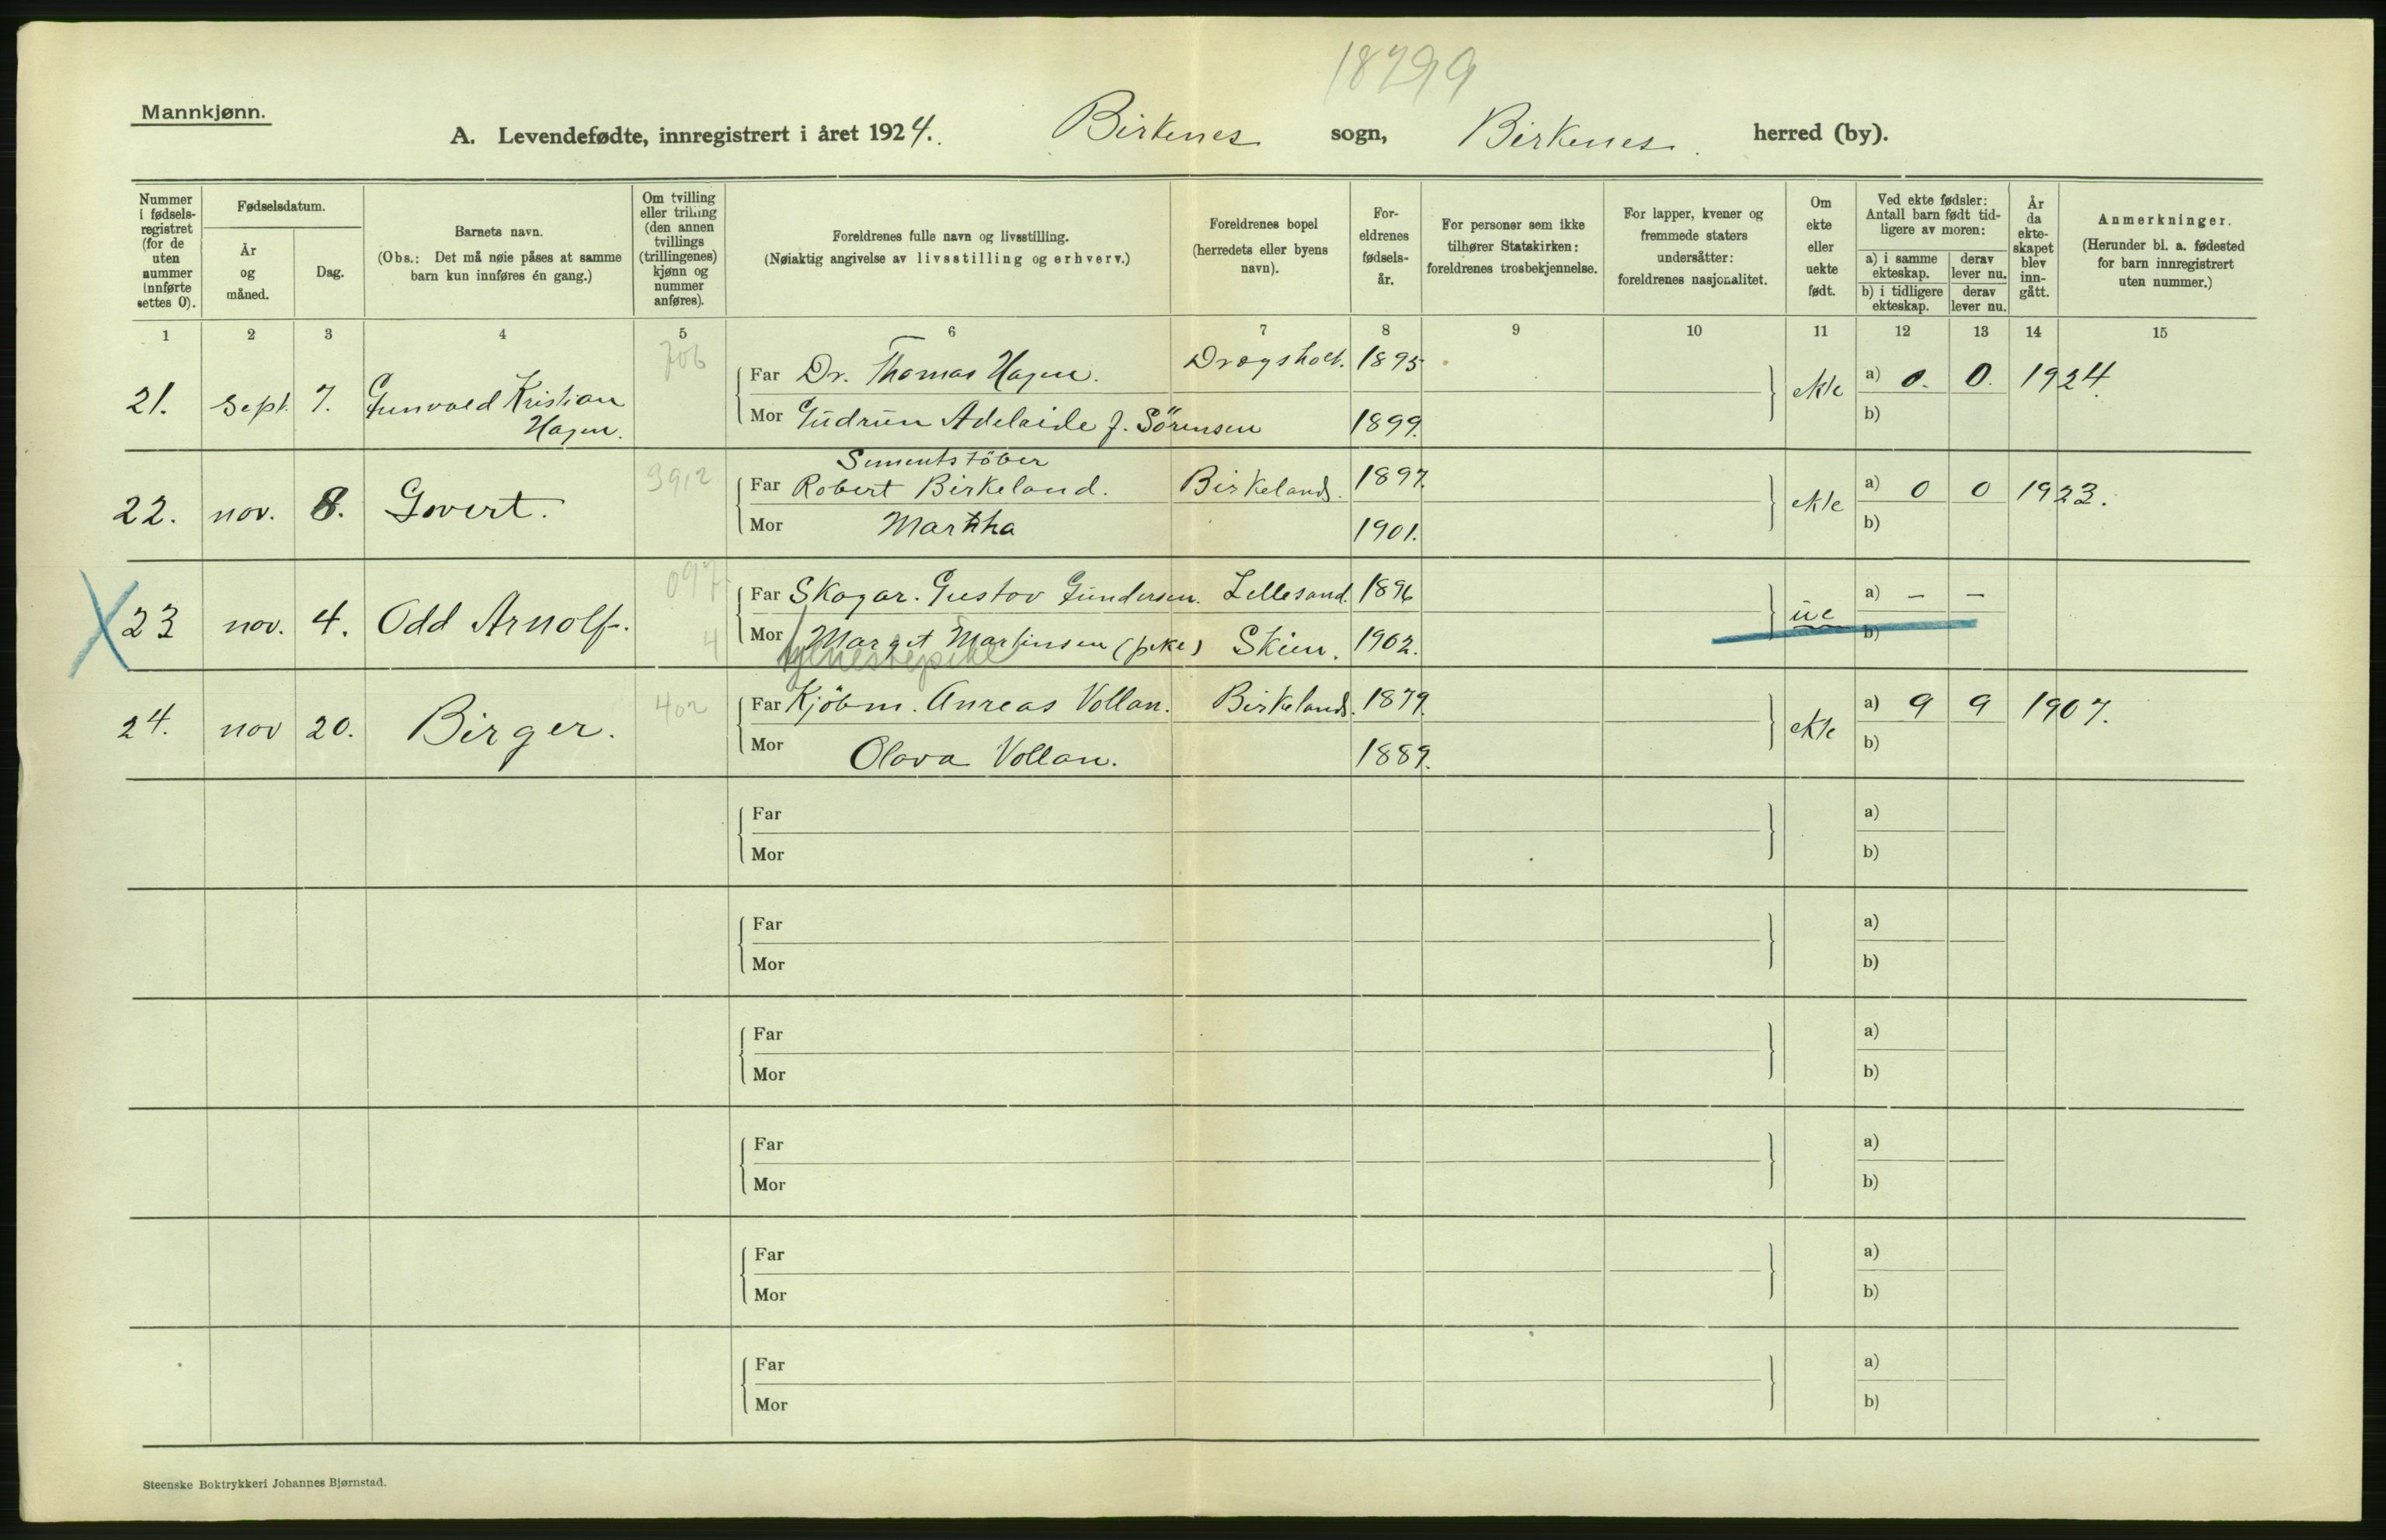 18799
Mannkjønn.
A. Levendefødte, innregistrert i året 1924. Birkenes sogn, Birkenes. herred (by).
Nummer i fødsels-registret (for de uten nummer innførte settes 0).
Fødselsdatum.
År og måned.
Dag.
Barnets navn.
(Obs.: Det må nøie påses at samme barn kun innføres én gang.)
Om tvilling eller trilling (den annen tvillings (trillingenes) kjønn og nummer anføres).
Foreldrenes fulle navn og livsstilling.
(Nøiaktig angivelse av livsstilling og erhverv.)
Foreldrenes bopel
(herredets eller byens navn).
For-eldrenes fødsels-år.
For personer som ikke tilhører Statskirken: foreldrenes trosbekjennelse.
For lapper, kvener og fremmede staters undersåtter: foreldrenes nasjonalitet.
Om ekte eller uekte født.
Ved ekte fødsler: Antall barn født tid-ligere av moren:
a) i samme ekteskap.
derav lever nu.
b) i tidligere ekteskap.
derav lever nu.
År da ekte-skapet blev inn-gått.
Anmerkninger.
(Herunder bl. a. fødested for barn innregistrert uten nummer.)
1 2 3 4 5 6 7 8 9 10 11 12 13 14 15
706
21. Sept. 7. Gunvald Kristian Hagen. Far Dr. Thomas Hagen. 1895 ekte a) 0. 0. 1924.
Mor Gudrun Adelaide f. Sörensen 1899. b)
3912
Sementstöber
22. nov. 8. Govert. Far Robert Birkeland. Birkeland. 1897. ekte a) 0 0 1923.
Mor Martha 1901. b)
097
4
X 23 nov. 4. Odd Arnolf. Far Skogar. Gustav Gundersen. Lillesand. 1896 ue a) – –
Mor Margit Martinsen (pike) Skien. 1902. b)
tjenestepike
402
24. nov 20. Birger. Far Kjöbm. Anreas Vollan. Birkeland. 1879. ekte a) 9 9 1907.
Mor Olava Vollan. 1889. b)
Far a)
Mor b)
Far a)
Mor b)
Far a)
Mor b)
Far a)
Mor b)
Far a)
Mor b)
Far a)
Mor b)
Steenske Boktrykkeri Johannes Bjørnstad.